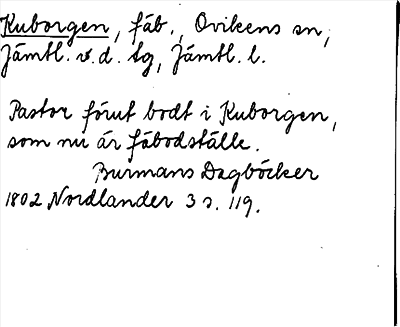 Kuborgen, fäb., Ovikens sn,
Jämtl. v. d. tg, Jämtl. l.
Pastor förut bodt i Kuborgen,
som nu är fäbodställe.
Burmans Dagböcker
1802 Nordlander 3 s. 119.